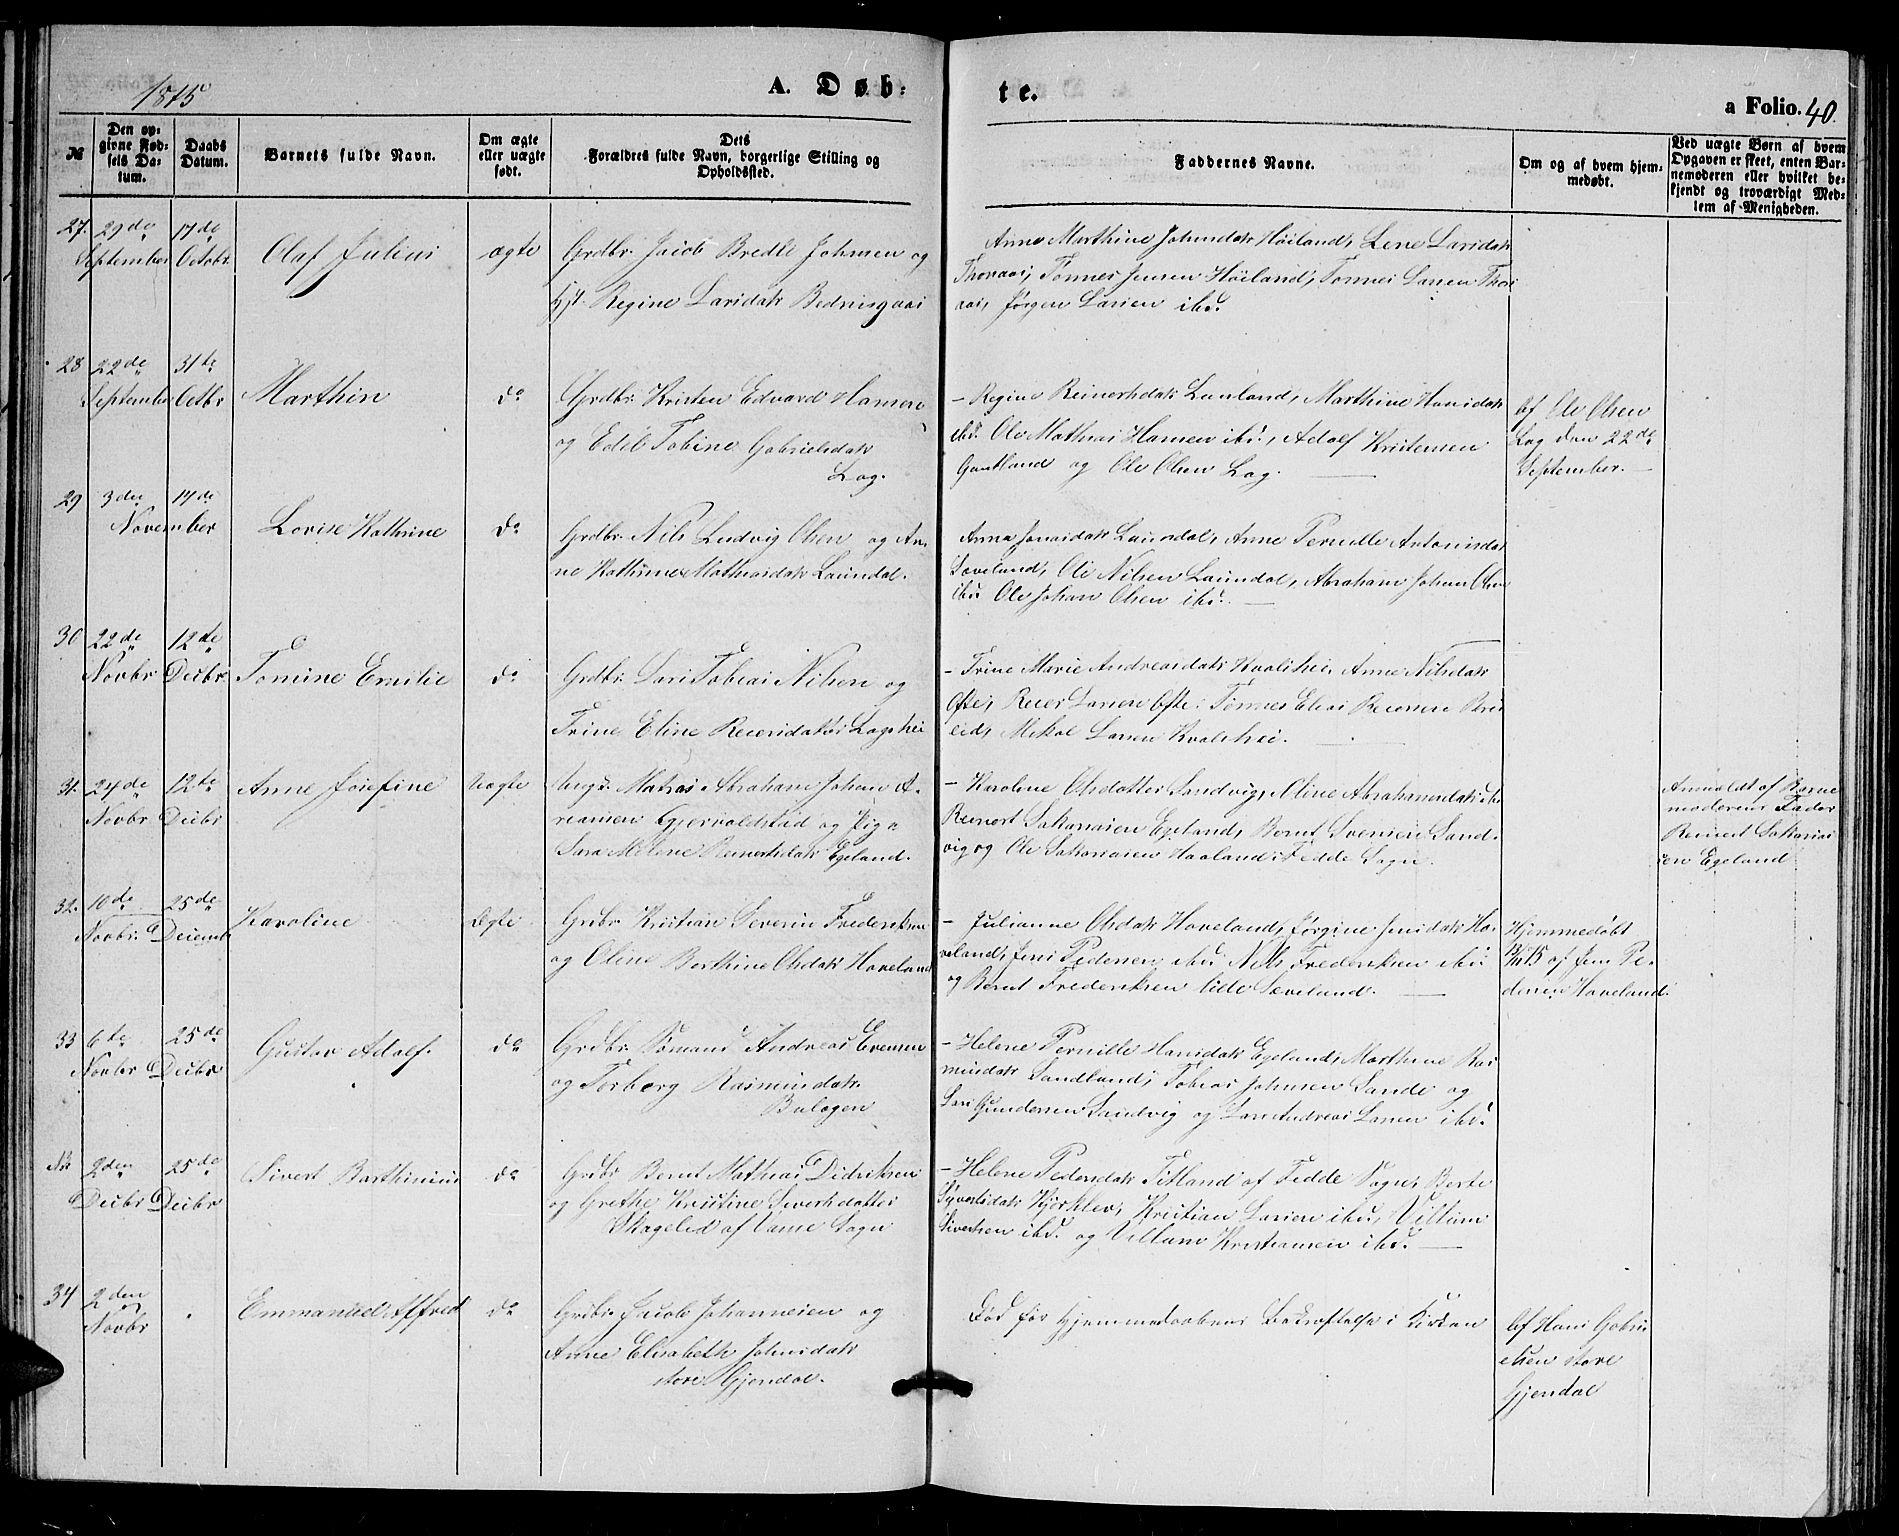 1875
A. Døb-
te.
a Folio. 40.
№
Den op-
givne Fød-
sels Da-
tum.
Daabs
Datum.
Barnets fulde Navn.
Om ægte
eller uægte
født.
Dets
Forældres fulde Navn, borgerlige Stilling og
Opholdssted.
Faddernes Navne.
Om og af hvem hjem-
medøbt.
Ved uægte Børn af hvem
Opgaven er skeet, enten Bar-
nemoderen eller hvilket be-
kjendt og troværdigt Med-
lem af Menigheden.
27. 29de 17de
September Octobr.
Olaf Julius
ægte
Grdbr. Jacob Bredle Johnsen og
Hst. Regine Larsdatr
Anne Marthine Johnsdatr Høiland, Lene Larsdatr
Thorsaas, Tønnes Jensen Høiland, Tønnes Larsen Thor
saas, Jørgen Larsen ibd.
28 22de 31te
September Octbr
Marthin
do
Grdbr. Kristen Edvard Hansen
og Edel Tobine Gabrielsdatr
Log.
– Regine Reinertsdatr Launland, Marthine Hansdatr
ibd. Ole Mathias Hansen ibd., Adolf Kristensen
Gautland og Ole Olsen Log.
Af Ole Olsen
Log den 22de
September.
29 3den 17de
November
Lovise Kathrine
do
Grdbr. Nils Ludvig Olsen og An-
ne Kathrine Mathiasdatr Laundal.
Anna Jonasdatr Laundal, Anne Pernille Antonisdatr
Sæveland, Ole Nilsen Laundal, Abraham Johan Olsen
ibd Ole Johan Olsen ibd.
30 22de 12te
Novbr Decbr.
Tomine Emilie
do
Grdbr. Lars Tobias Nilsen og
Trine Eline Reiersdatter Logshei
– Trine Marie Andreasdatr Kvalshei, Anne Nilsdatr
Ofte, Reier Larsen Ofte, Tønnes Elias Reiersen
Mikal Larsen Kvalshei.
31. 24de 12te
Novbr Decbr
Anne Josefine
Uægte
Ungk. Matias Abraham Johan A-
reansen Gjervoldstad og Pige
Sara Helene Reinertsdatr Egeland.
– Karoline Olsdatter Sandvig, Oline Abrahamsdatr ibd
Reinert Sakariasen Egeland, Bernt Svensen Sand-
vig og Ole Sakariasen Haaland, Fedde Sogn.
Anmeldt af Barne
moderens Fader
Reinert Sakarias
sen Egeland
32. 10de 25de
Novbr. Decembr
Karoline
Ægte
Grdbr Kristian Severin Frederiksen
og Oline Berthine Olsdatr Haveland
– Julianne Olsdatr Haveland, Jørgine Jensdatr Ha-
veland, Jens Pedersen ibd Nils Frederiksen ibd
og Bernt Frederiksen lille Sæveland.
Hjemmedøbt
af Jens Pe-
dersen Haveland.
33 6te 25de
Novbr Decbr
Gustav Adolf.
do
Grdbr. Sømand Andreas Evensen
og Torborg Rasmusdatr
Bulægen
– Helene Pernille Hansdatr Egeland, Marthine Ras
musdatr Sandland, Tobias Johnsen Sande og
Lars Gundersen Sandvig og Lars Andreas Larsen ibd.
Nb 2den 25de
Decbr Decbr
Sivert Barthinius
do
Grdbr Bernt Mathias Didriksen
og Grethe Kristine Sivertsdatter
Skageled af Vanse Sogn
– Helene Pedersdatr Titland af Fedde Sogn, Berte
Syvertsdatr Kjørklev, Kristian Larsen ibd, Villum
Sivertsen ibd. og Villum Kristiansen ibd.
34 2den
Novbr
Emmanuel Alfred
do
Grdbr. Jacob Johannesen og
Anne Elisabeth Johnsdatr
store Gjendal.
Død før Hjemmedaabens Bekræftelse i Kirken
Af Hans Gabri
elsen store
Gjendal